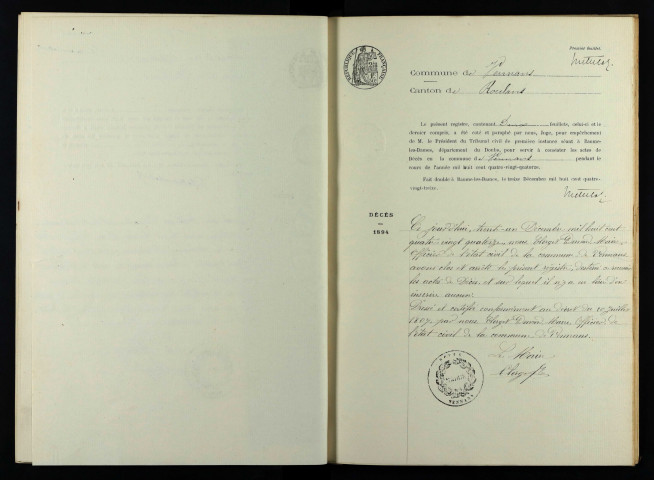 Premier feuillet.
RÉPUBLIQUE FRANÇAISE
Commune de Vennans
Canton de Roulans
Le présent registre, contenant Deux feuillets, celui-ci et le
dernier compris, a été coté et paraphé par nous, Juge, pour empêchement
de M. le Président du Tribunal civil de première instance séant à Baume-
les-Dames, département du Doubs, pour servir à constater les actes de
Décès en la commune de Vennans pendant le
cours de l'année mil huit cent quatre-vingt-quatorze.
Fait double à Baume-les-Dames, le treize Décembre mil huit cent quatre-
vingt-treize.
DÉCÈS
1894
Ce jourd'hui, trente-un Décembre mil huit cent
quatre vingt quatorze, nous Maire
Officier de l'état civil de la commune de Vennans
avons clos et arrêté le présent registre destiné à
les actes de Décès, et sur lequel il n'y a eu lieu d'en
inscrire aucun.
Dressé et certifié conformément au décret du 20 Juillet
1807, par nous Maire, Officier de
l'état civil de la commune de Vennans.
Le Maire